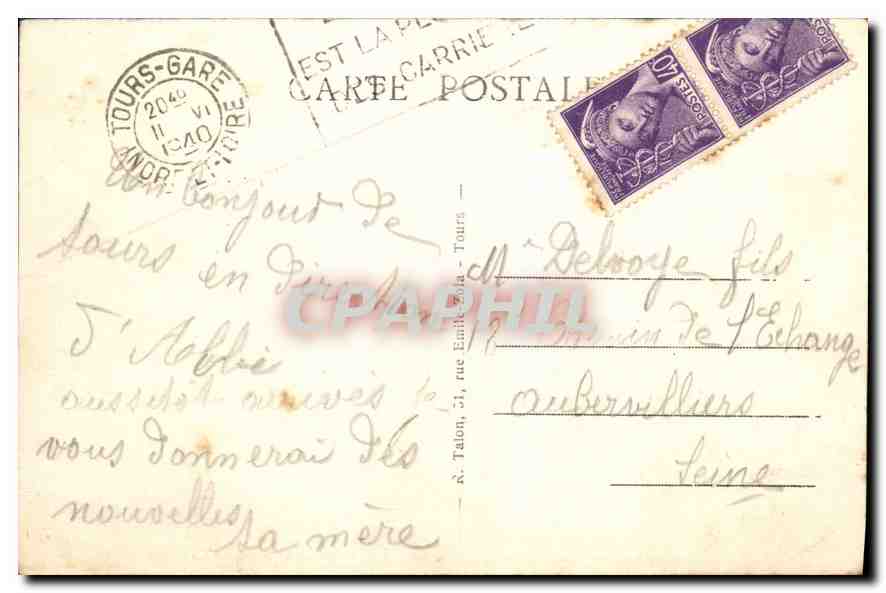 EST LA PL
CARRIE
CARTE POSTALE
TOURS-GARE
20 45
11 VI
1940
INDRE-ET-LOIRE
40
POSTES
POSTES
Un bonjour de
tours
en direction
d'Albi
aussitôt arrivés je
vous donnerai des
nouvelles
ta mère
R. Talon, 51, rue Emile Zola - Tours -
Mr Delvoye fils
de l'Echange
Aubervilliers
Seine
CPAPHIL